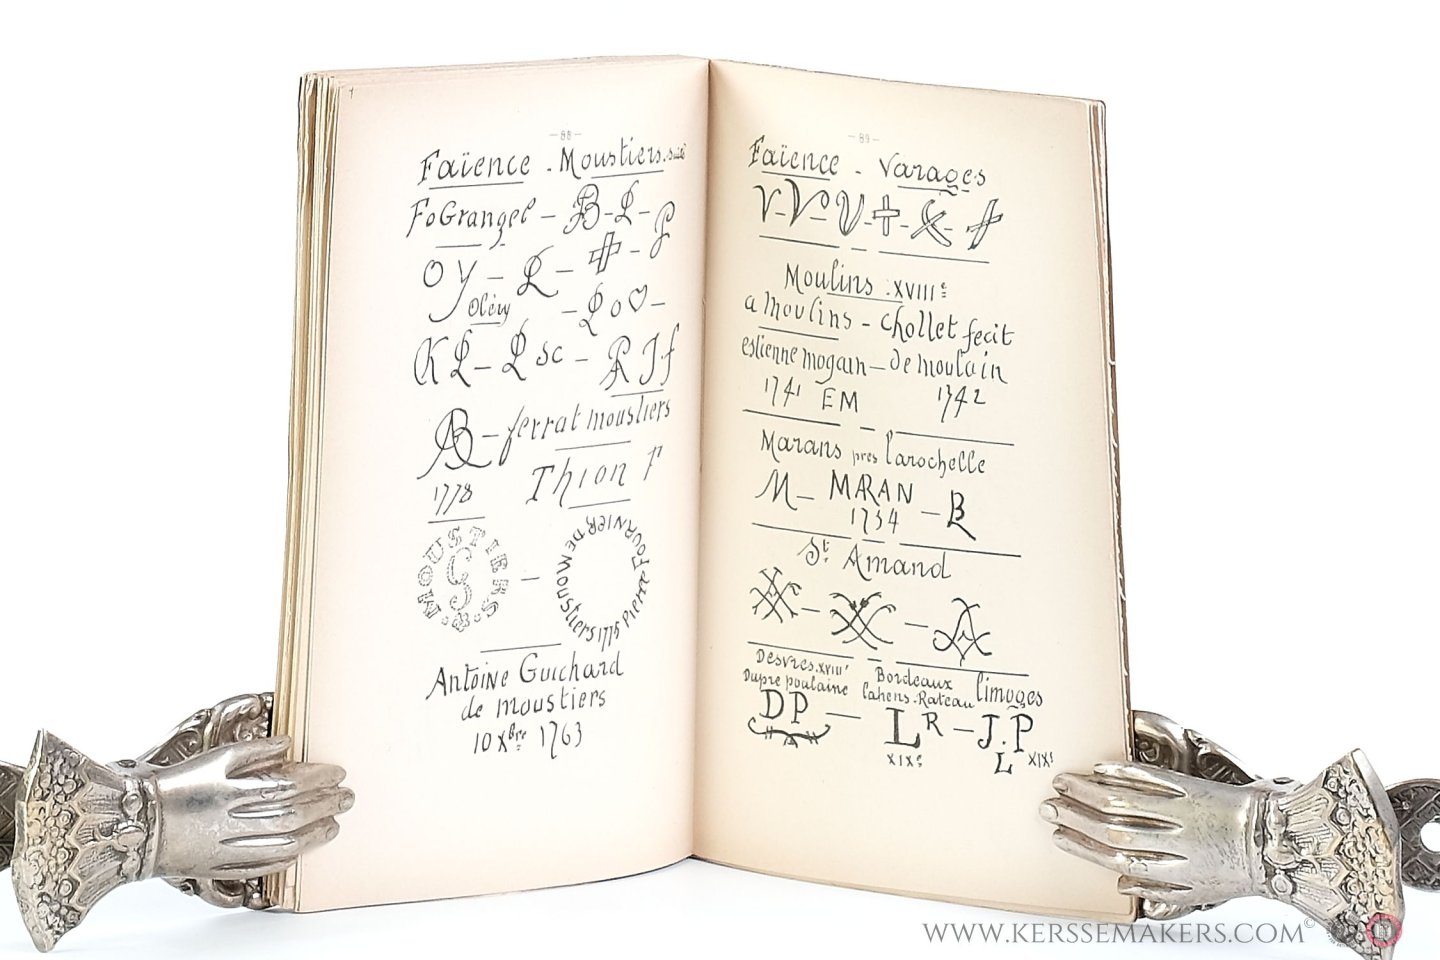 -88-
Faïence - Moustiers. suite
FoGrangel - B - L - P
OY - L - P
Oléry - L O
K L - L sc - PA J.f
AB - ferrat moustiers
1778 Thion F
MOUSTIERS GS - Pierre Fournier de Moustiers 1775
Antoine Guichard
de moustiers
10 Xbre 1763
-89-
Faïence - Varages
V - V - V
Moulins . XVIIIe
a moulins - chollet fecit
estienne mogain - de moulain
1741 EM 1742
Marans pres larochelle
M - MARAN - BL
1754
St Amand
Desvres. XVIIIe Bordeaux limoges
Dupre poulaine Lahens. Rateau
DP - LR - J.P
XIXe L XIXe
WWW.KERSSEMAKERS.COM©